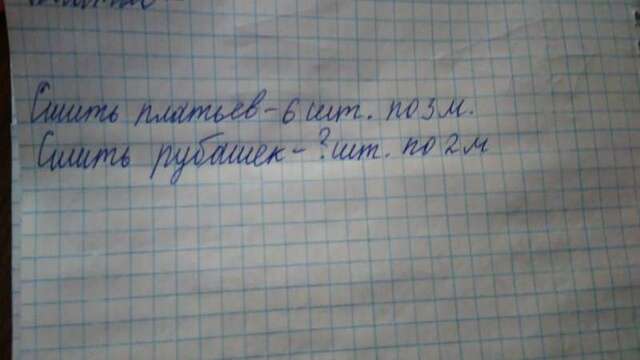 Сшить платьев - 6 шт. по 3 м.
Сшить рубашек - ? шт. по 2 м